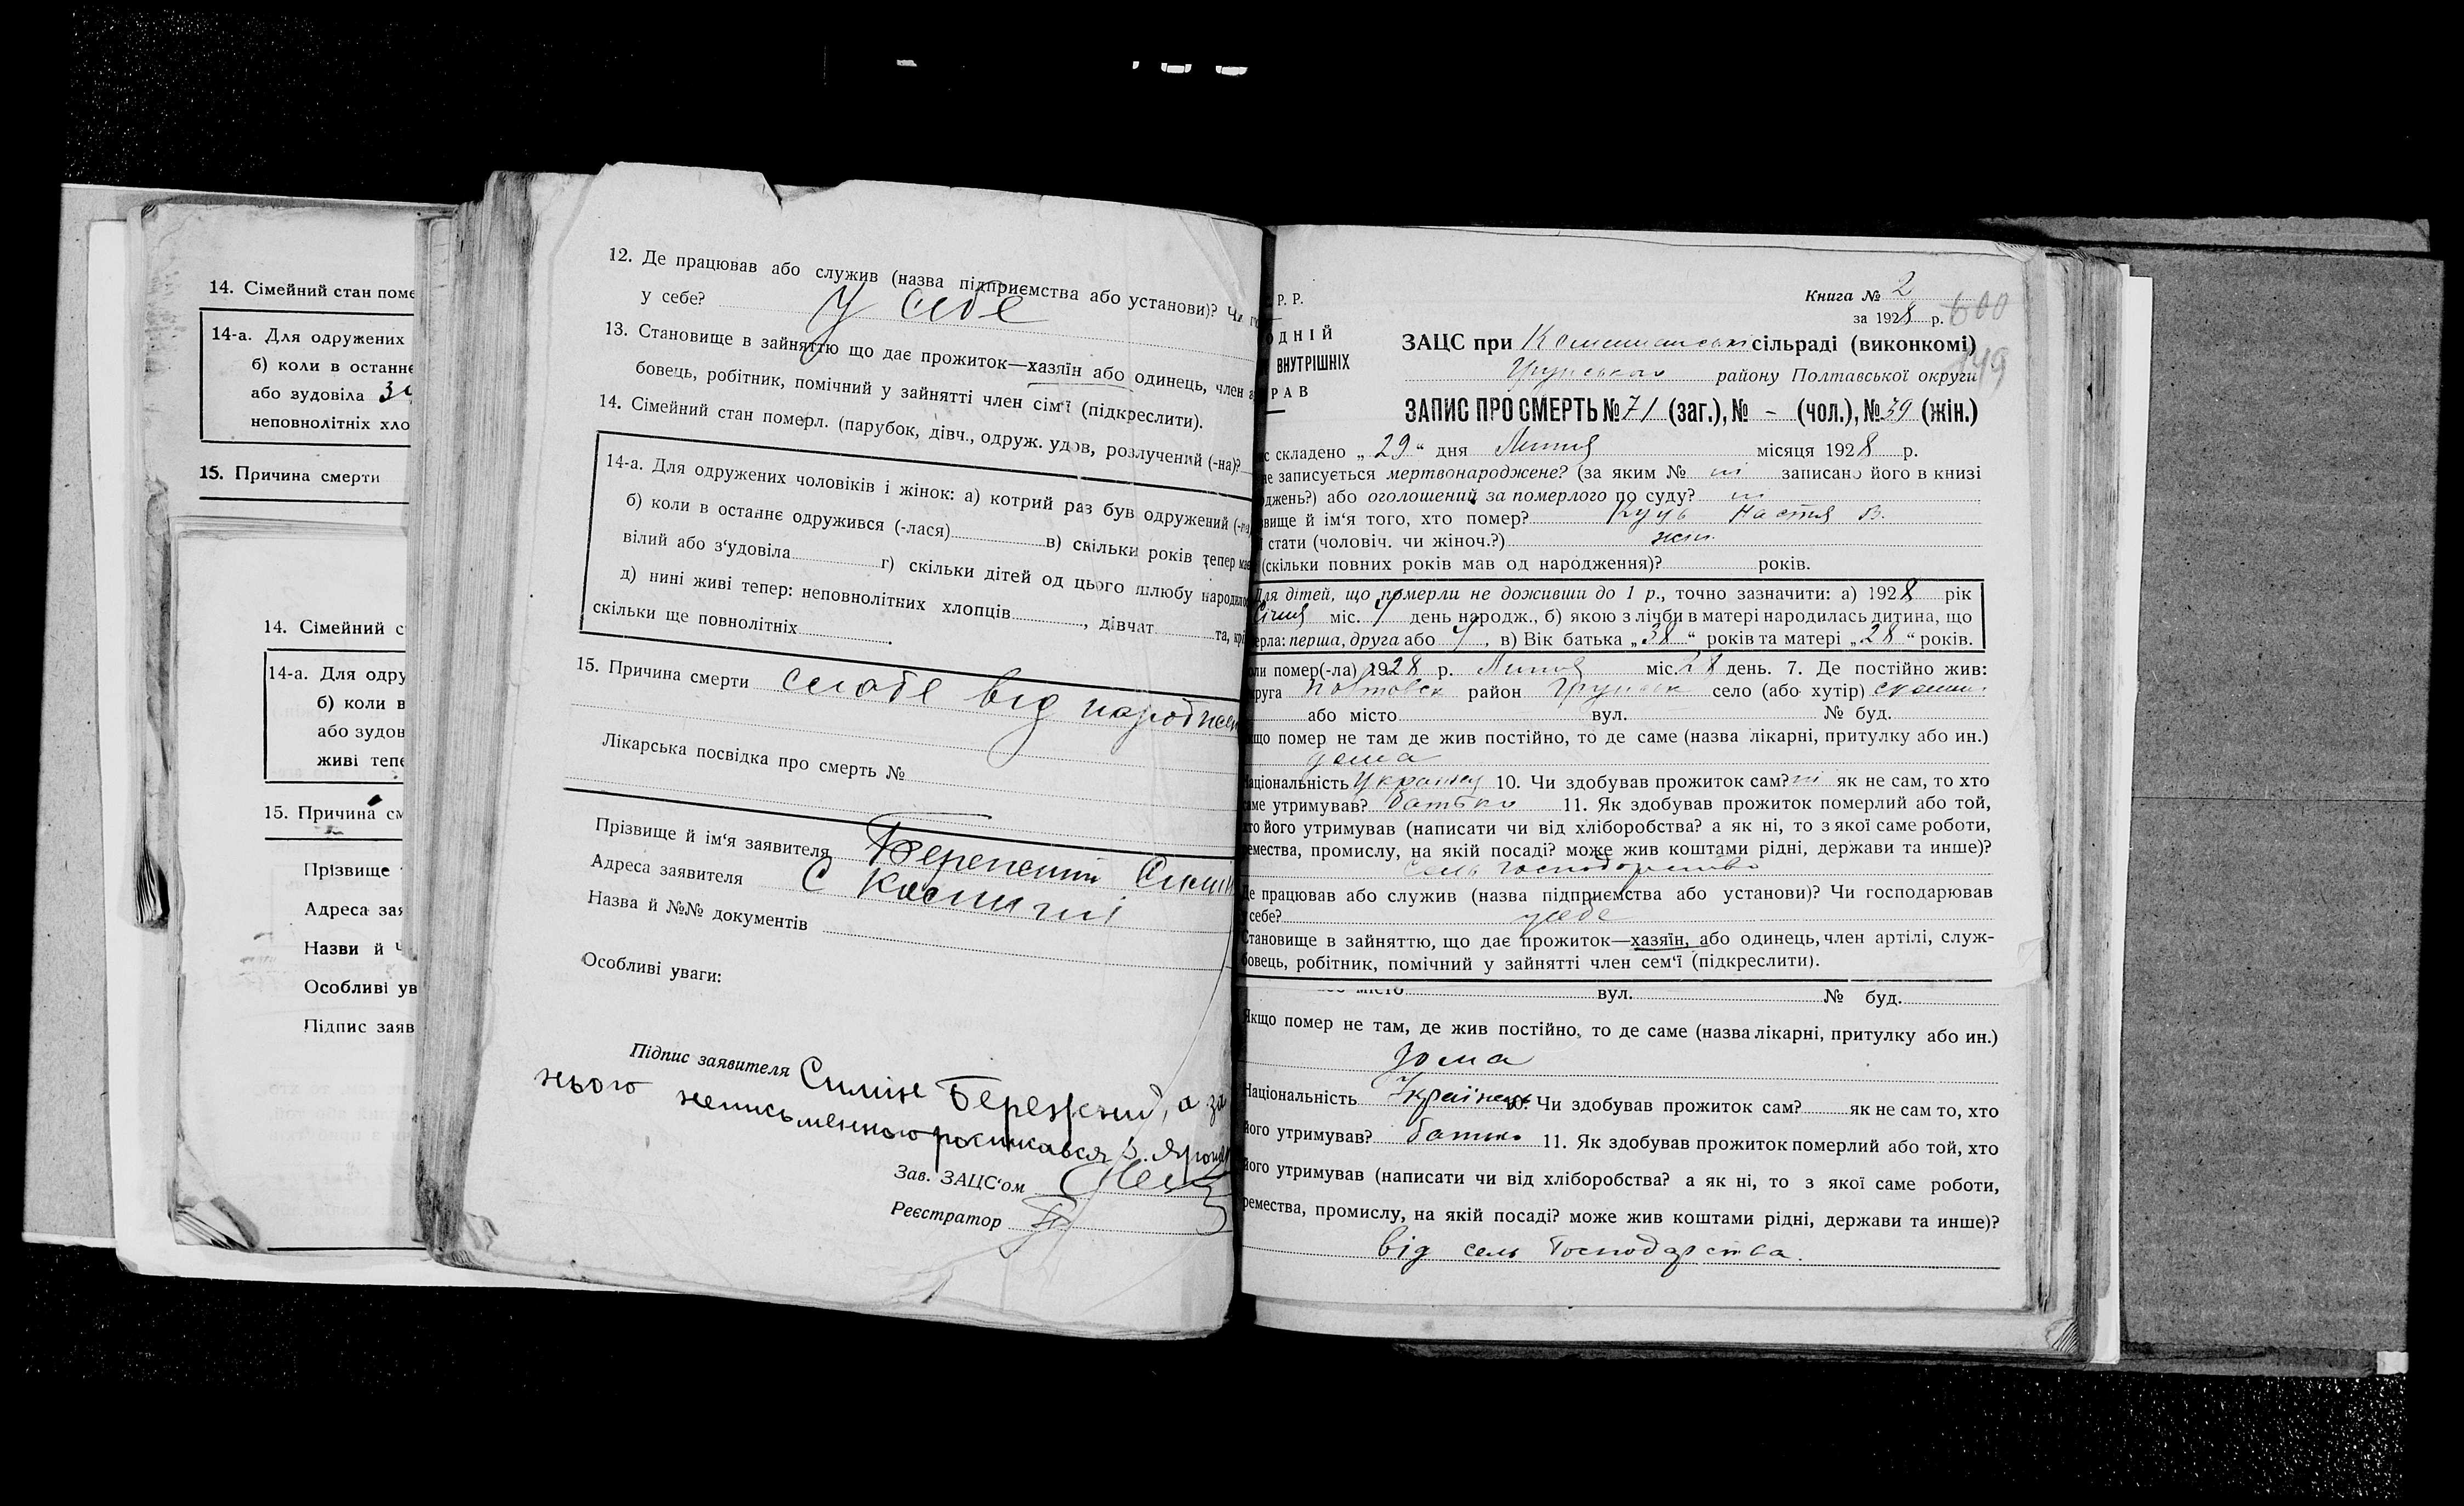 14. Сімейний стан поме
14-а. Для одружених
б) коли в останнє
або зудовіла
неповнолітніх хло
15. Причина смерти
14. Сімейний с
14-а. Для одру
б) коли в
або зудов
живі тепе
15. Причина см
Прізвище
Адреса зая
Назви й
Особливі ув
Підпис заяв
12. Де працював або служив (назва підприємства або установи)? Чи го
у себе? У себе
13. Становище в зайняттю що дає прожиток—хазяїн або одинець, член а
бовець, робітник, помічний у зайнятті член сім'ї (підкреслити).
14. Сімейний стан померл. (парубок, дівч., одруж. удов, розлучений (-на)?
14-а. Для одружених чоловіків і жінок: а) котрий раз був одружений (-на)
б) коли в останнє одружився (-лася) в) скільки років тепер має
вілий або з'удовіла г) скільки дітей од цього шлюбу народило
д) нині живі тепер: неповнолітних хлопців , дівчат та, крі
скільки ще повнолітніх .
15. Причина смерти слабе від народжен
Лікарська посвідка про смерть №
Прізвище й ім'я заявителя
Адреса заявителя С
Назва й №№ документів
Особливі уваги:
Підпис заявителя Симін Бережний, а за
нього неписьменного росписався
Зав. ЗАЦС'ом
Реєстратор
Р. Р.
ОДНІЙ
ВНУТРІШНІХ
РАВ
Книга № 2
за 1928 р. 600
ЗАЦС при сільраді (виконкомі)
149
Грунського району Полтавської округи
ЗАПИС ПРО СМЕРТЬ № 71 (заг.), № - (чол.), № 39 (жін.)
с складено „ 29 “ дня Липня місяця 1928 р.
не записується мертвонароджене? (за яким № ні записано його в книзі
оджень?) або оголошений за померлого по суду? ні
звище й ім'я того, хто помер? Куць Настя В.
ї стати (чоловіч. чи жіноч.?) жін.
(скільки повних років мав од народження)? років.
Для дітей, що померли не доживши до 1 р., точно зазначити: а) 1928 рік
Січня міс. день народж., б) якою з лічби в матері народилась дитина, що
ерла: перша, друга або , в) Вік батька „ 38 “ років та матері „ 28 “ років.
оли помер(-ла) 1928 р. Липня міс. 28 день. 7. Де постійно жив:
круга район село (або хутір)
або місто вул. № буд.
кщо помер не там де жив постійно, то де саме (назва лікарні, притулку або ин.)
дома
Національність 10. Чи здобував прожиток сам? ні як не сам, то хто
саме утримував? батько 11. Як здобував прожиток померлий або той,
хто його утримував (написати чи від хліборобства? а як ні, то з якої саме роботи,
ремества, промислу, на якій посаді? може жив коштами рідні, держави та инше)?
сель господарство
Де працював або служив (назва підприємства або установи)? Чи господарював
у себе? у себе
Становище в зайняттю, що дає прожиток—хазяїн, або одинець, член артілі, служ-
бовець, робітник, помічний у зайнятті член сем'ї (підкреслити).
місто вул. № буд.
Якщо помер не там, де жив постійно, то де саме (назва лікарні, притулку або ин.)
дома
Національність Українець 10. Чи здобував прожиток сам? як не сам то, хто
його утримував? батько 11. Як здобував прожиток померлий або той, хто
його утримував (написати чи від хліборобства? а як ні, то з якої саме роботи,
ремества, промислу, на якій посаді? може жив коштами рідні, держави та инше)?
від сель Господарства.